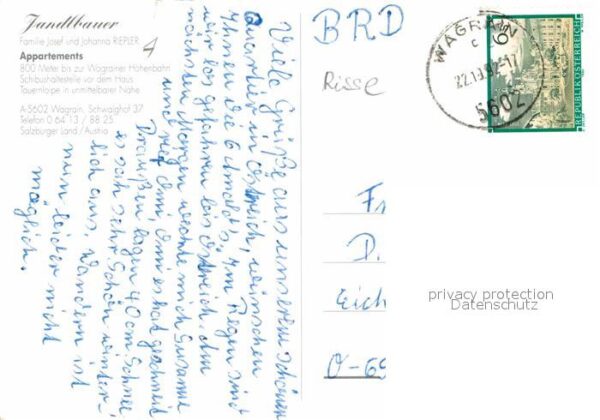 Jandlbauer
Familie Josef und Johanna RIEPLER
Appartements
800 Meter bis zur Wagrainer Höhenbahn
Schibushaltestelle vor dem Haus
Tauernloipe in unmittelbarer Nähe
A-5602 Wagrain, Schwaighof 37
Telefon 0 64 13 / 88 25
Salzburger Land / Austria
Viele Grüße aus unserem schönen
Quartier in Östreich, wünschen
Ihnen die 6 Im Regen sind
wir los gefahren bis Östreich. Am
nächsten Morgen weckte mich Susanne
und rief Omi Omi es hat geschneit
Draußen lagen 40 cm Schnee
es sah sehr schön winter-
lich aus, Wandern ist
nun leider nicht
möglich.
BRD
Risse
WAGRAIN
5602
REPUBLIK ÖSTERREICH
6
Fr
D.
Eich
O-69
privacy protection
Datenschutz